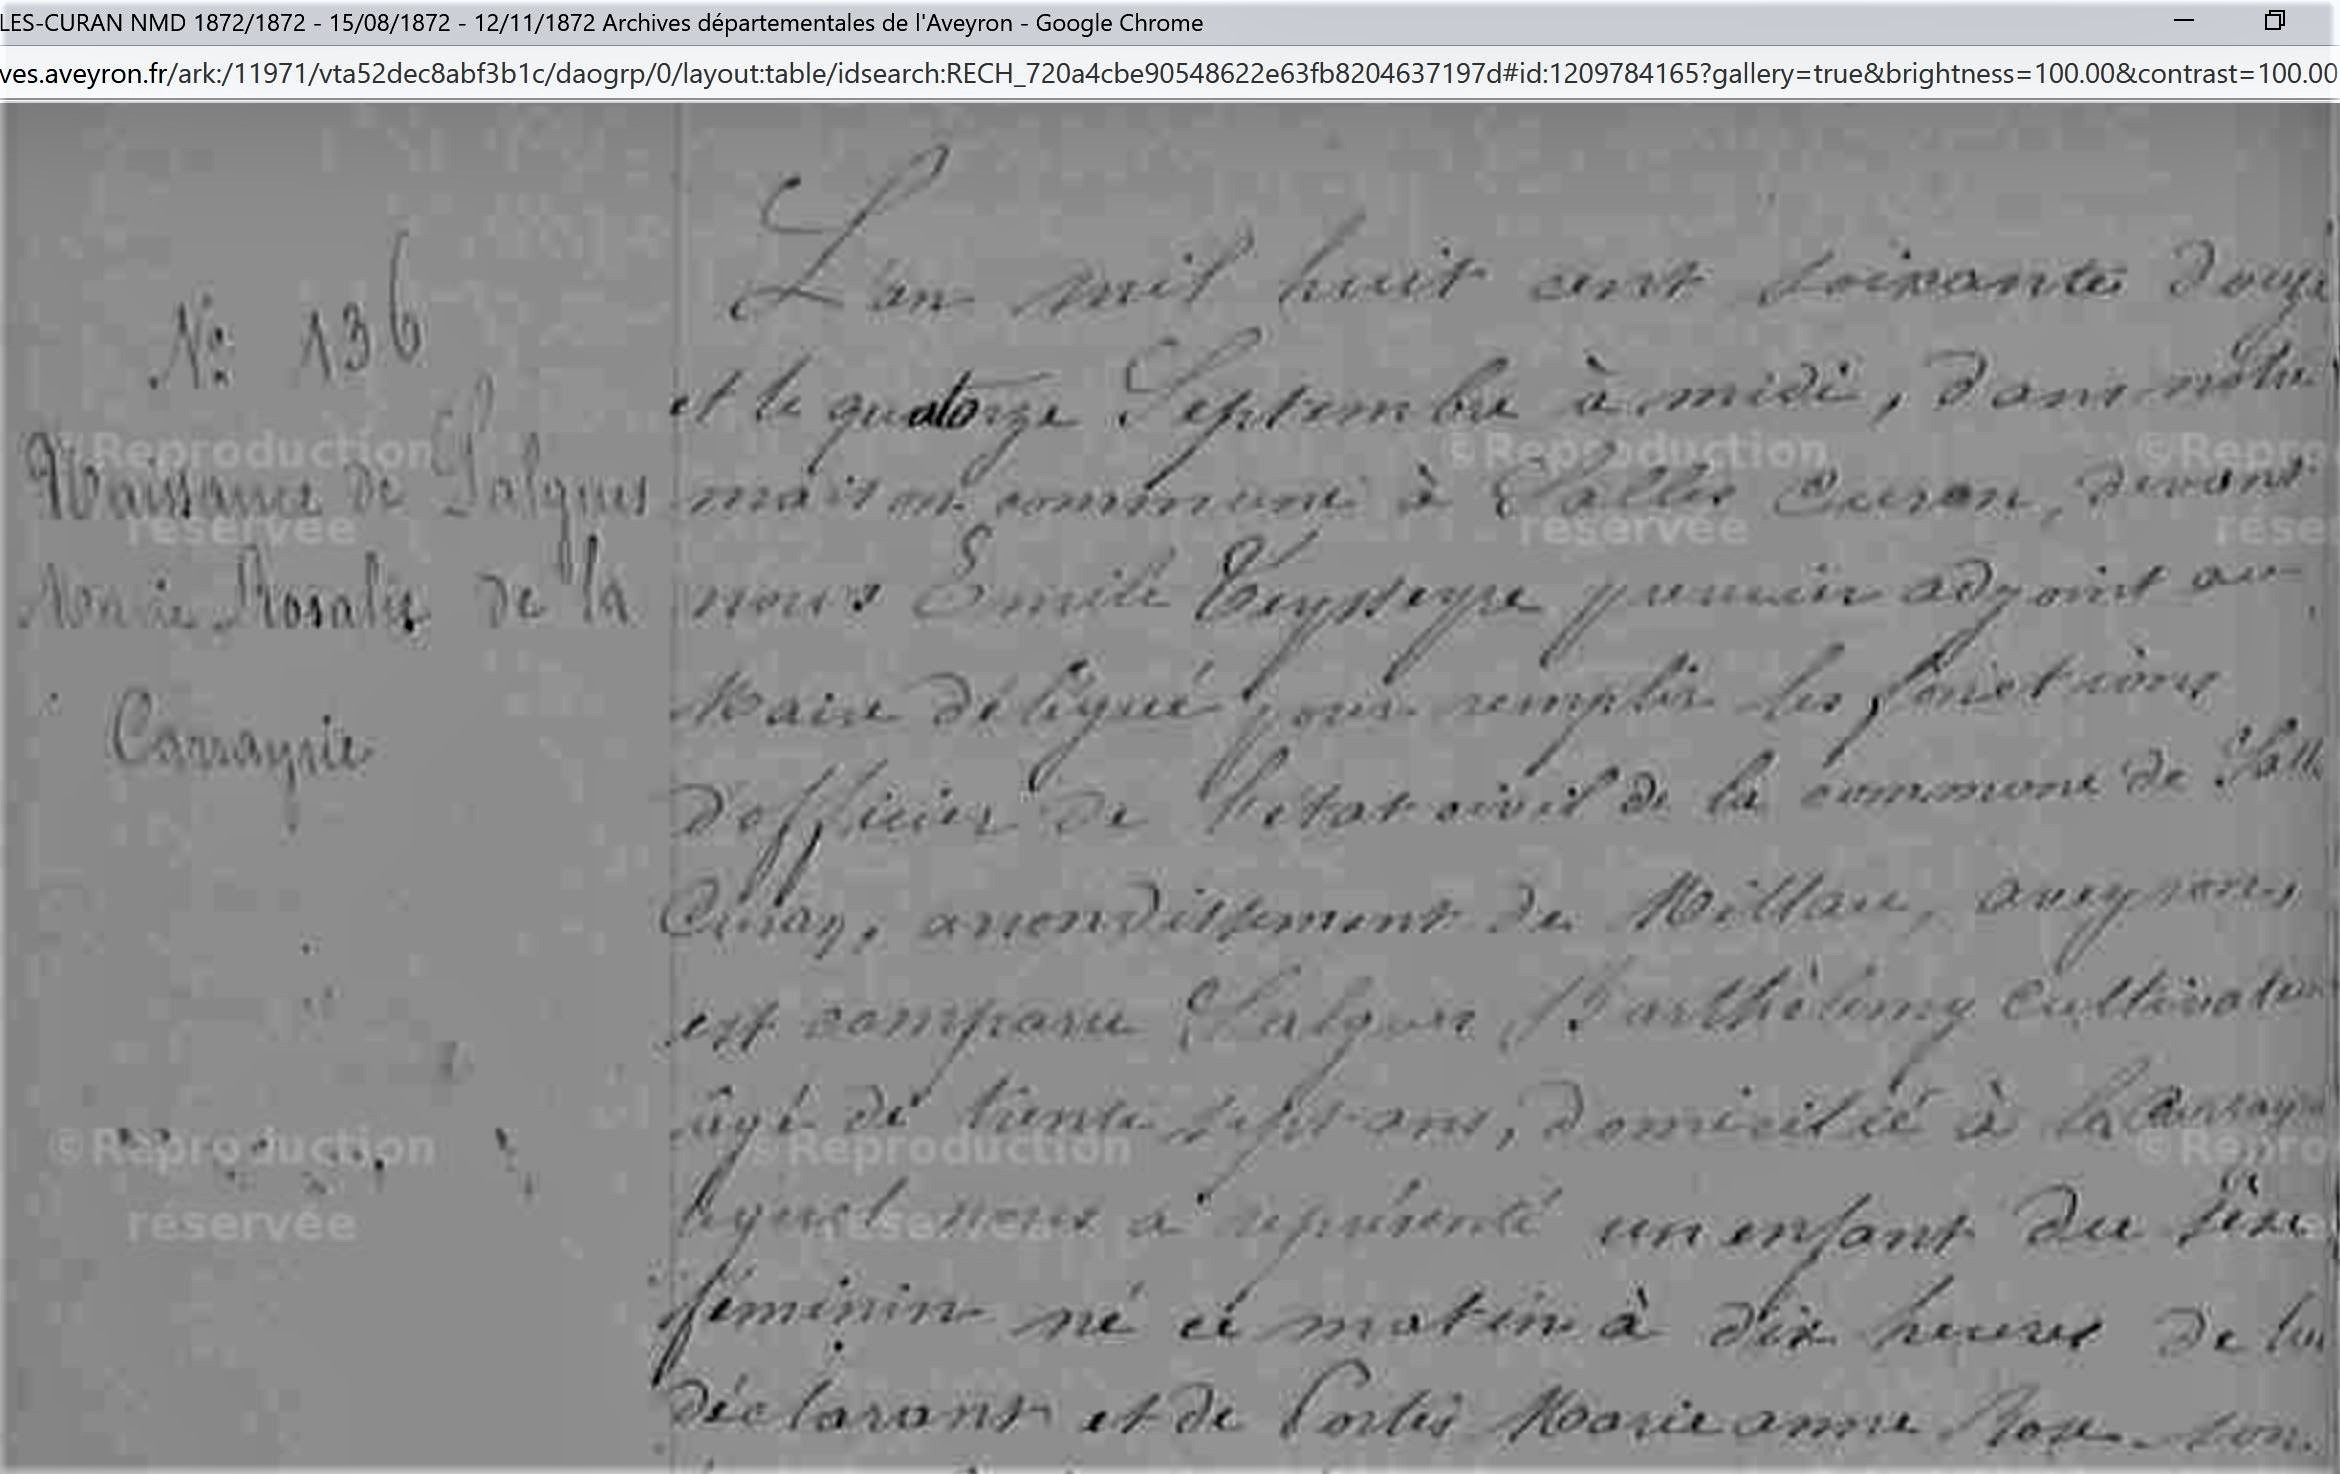 LES-CURAN NMD 1872/1872 - 15/08/1872 - 12/11/1872 Archives départementales de l'Aveyron - Google Chrome
ves.aveyron.fr/ark:/11971/vta52dec8abf3b1c/daogrp/0/layout:table/idsearch:RECH_720a4cbe90548622e63fb8204637197d#id:1209784165?gallery=true&brightness=100.00&contrast=100.00
Nº 136
Naissance de Salgues
Marie Rosalie de la
Carrayrie
L'an mil huit cent soixante douze
et le quatorze Septembre à midi, dans notre
maison commune à Salles Curan, devant
nous Emile Teysseyre premier adjoint au
Maire délégué pour remplir les fonctions
d'officier de l'état civil de la commune de Salle
Curan, arrondissement de Millau, aveyron,
est comparu Salgues Barthélemy Cultivateur
âgé de trente sept ans, domicilié à la Carrayri
lequel nous a représenté un enfant du sèxe
féminin né ce matin à dix heures de lui
déclarant et de Portes Marie anne Rose son
©Reproduction
réservée
©Reproduction
réservée
©Repro
rése
©Reproduction
réservée
©Reproduction
réservée
©Repro